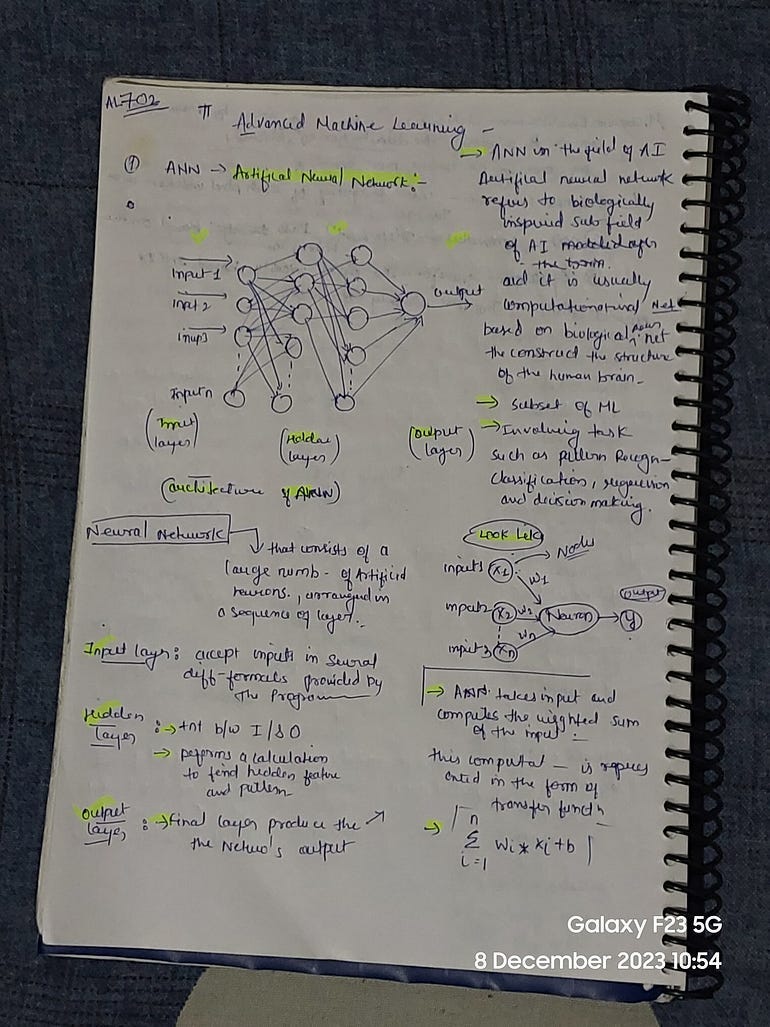 AL702
Π Advanced Machine Learning -
① ANN → Artifical Neural Network:-
Input 1
Input 2
Inup3
Input n
output
(Input
layer)
(Hidden
layer)
(Output
layer)
(architecture of ANN)
→ ANN in the field of AI
Aetifical neural network
refers to biologically
inspired sub field
of AI modeled after
the brain.
and it is usually
computational Net
based on biological neu net
the construct the structure
of the human brain.
→ Subset of ML
→ Involving task
such as pattern Recogn-
classification, regression
and decision making.
Neural Network
↓ that consists of a
large numb- of Artificid
neurons., arranged in
a sequence of layer.
Input layer: accept inputs in several
diff-formats provided by
the Program
Hidden
layer :→ Int b/w I/& O
→ performs a calculation
to find hidden feature
and pattern
Output
layer :→ final layer produce the
the Netwo's output
Look Like
inputs X1 → Nodes
W1
inputs2 X2 W2 Neuron → Y
Output
Wn
inputs Xn
→ ANN takes input and
computes the wighted sum
of the input :-
this computat — is repres
ented in the form of
transfer functn
→ n
Σ Wi * Xi + b
i=1
Galaxy F23 5G
8 December 2023 10:54